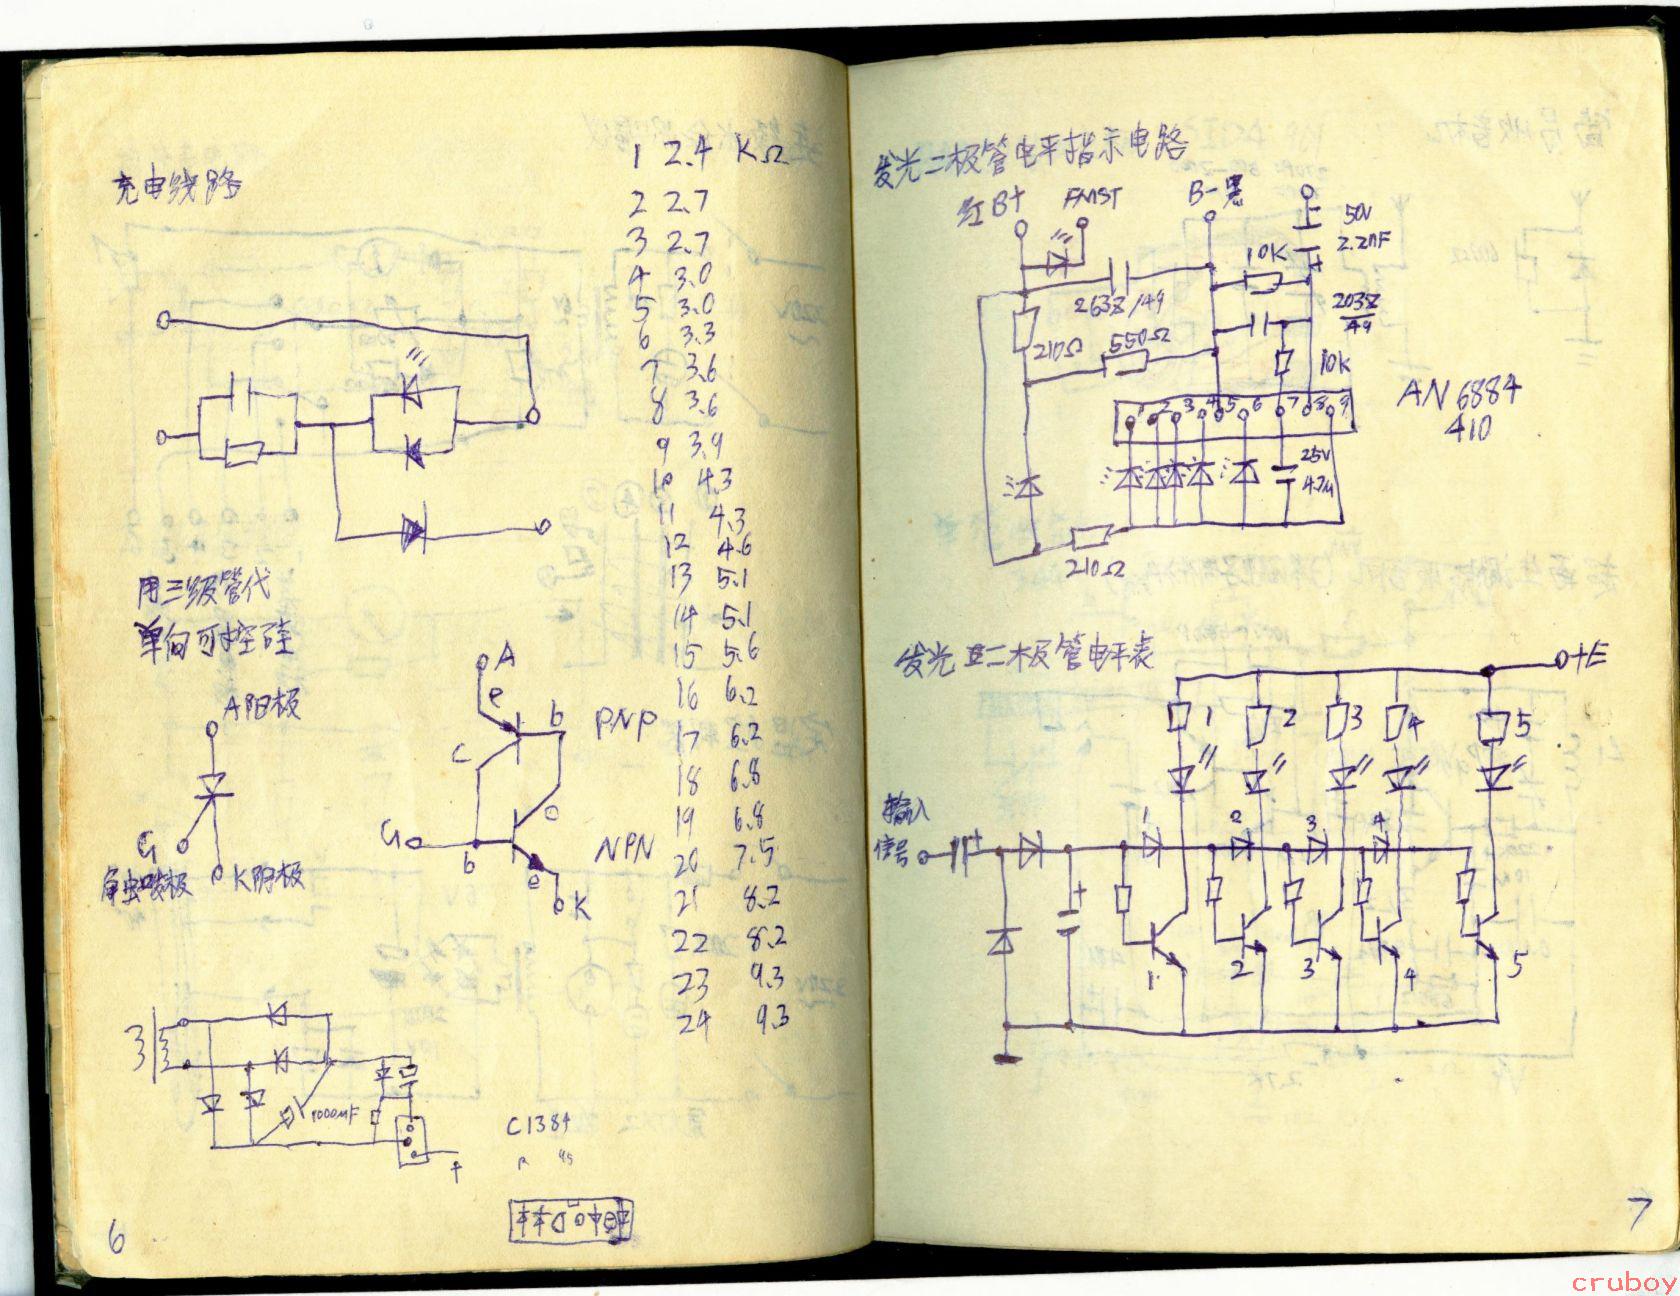 充电线路
1 2.4 KΩ
2 2.7
3 2.7
4 3.0
5 3.0
6 3.3
7 3.6
8 3.6
9 3.9
10 4.3
11 4.3
12 4.6
13 5.1
14 5.1
15 5.6
16 6.2
17 6.2
18 6.8
19 6.8
20 7.5
21 8.2
22 8.2
23 9.3
24 9.3
用三级管代
单向可控硅
A阳极
G
K阴极
A
e
b
PNP
c
c
G
b
NPN
e
K
1000μF
+
C1384
6
发光二极管电平指示电路
红B+
B-黑
50V
2.2μF
+
10K
263Z/49
203Z
49
210Ω
550Ω
10K
1 2 3 4 5 6 7 8 9
AN6884
410
25V
4.7μ
210Ω
发光二极管电平表
+E
1 2 3 4 5
输入
信号
+
1 2 3 4
+
1 2 3 4 5
7
cruboy